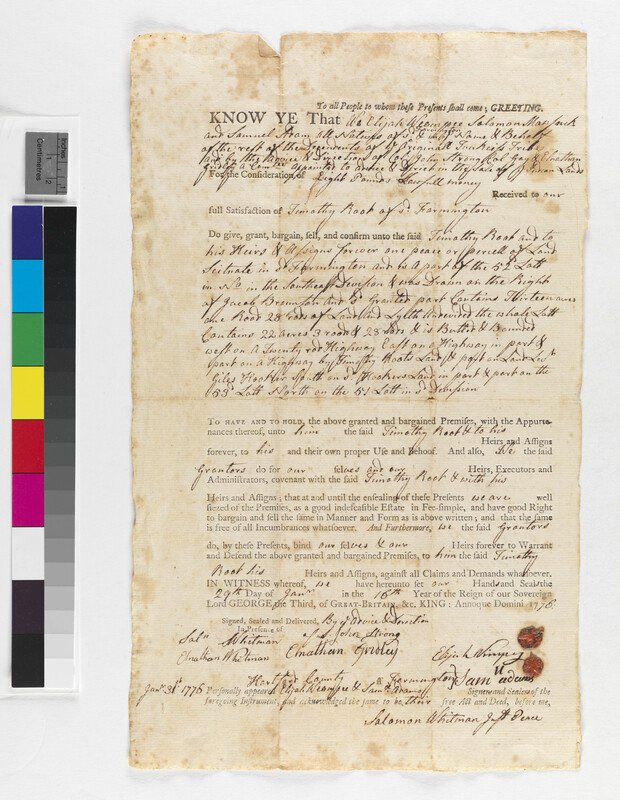 Inches
Centimetres
To all People to whom these Presents shall come; GREETING.
KNOW YE That We Elijah Weampee Solomon Mossuck
and Samuel Adam All Natives of sd Farmington in the Name & Behalf
of the rest of the Dependents of ye Original Tunksis Tribe
and by the Advice & Direction of Col John Strong & Elnathan
Gridley a Comtee Appointed to advise & Direct in the sale of sd Indian Lands
For the Consideration of Eight Pounds Lawfull money
Received to our
full Satisfaction of Timothy Root of sd Farmington
Do give, grant, bargain, sell, and confirm unto the said Timothy Root and to
his Heirs & Assigns forever one peace or percell of Land
Scituate in sd Farmington and is A part of the 52 Lott
in No in the Southeast Division & was Drawn on the Right
of Jacob Bemusan and sd Granted part Contains Thirteen acres
one Rood 28 rods of Land and Lyeth undevided the whole Lott
Contains 22 acres 3 roods & 28 rods & is Butted & Bounded
west on A Twenty rod Highway East on a Highway in part &
part on a Highway by Timothy Roots Land & part on Land
Giles Hooker South on sd Hookers Land in part & part on the
53 Lott North on the 51 Lott in sd Division
TO HAVE AND TO HOLD, the above granted and bargained Premises, with the Appurte-
nances thereof, unto him the said Timothy Root & to his
Heirs and Assigns
forever, to his and their own proper Use and Behoof. And also, We the said
Grantors do for our selves and our Heirs, Executors and
Administrators, covenant with the said Timothy Root & with his
Heirs and Assigns, that at and until the ensealing of these Presents we are well
siezed of the Premises, as a good indefeasible Estate in Fee-simple, and have good Right
to bargain and sell the same in Manner and Form as is above written; and that the same
is free of all Incumbrances whatsoever. And Furthermore, we the said Grantors
do, by these Presents, bind our selves & our Heirs forever to Warrant
and Defend the above granted and bargained Premises, to him the said Timothy
Root his Heirs and Assigns, against all Claims and Demands whatsoever.
IN WITNESS whereof, we have hereunto set our Hands and Seals the
29th Day of Janry in the 16th Year of the Reign of our Sovereign
Lord GEORGE the Third, of GREAT-BRITAIN, &c. KING: Annoque Domini 1776.
Signed, Sealed and Delivered, By ye Advice & Direction
In Presence of of John Strong
Soln Whitman Elnathan Gridley
Elnathan Whitman Elijah Wimpey
Sam adams
Hartford County ss Farmington
Janry 31st 1776 Personally appeared Elijah Weampee & Saml Adams Signers and Sealers of the
foregoing Instrument, and acknowledged the same to be their free Act and Deed, before me,
Solomon Whitman Just Peace